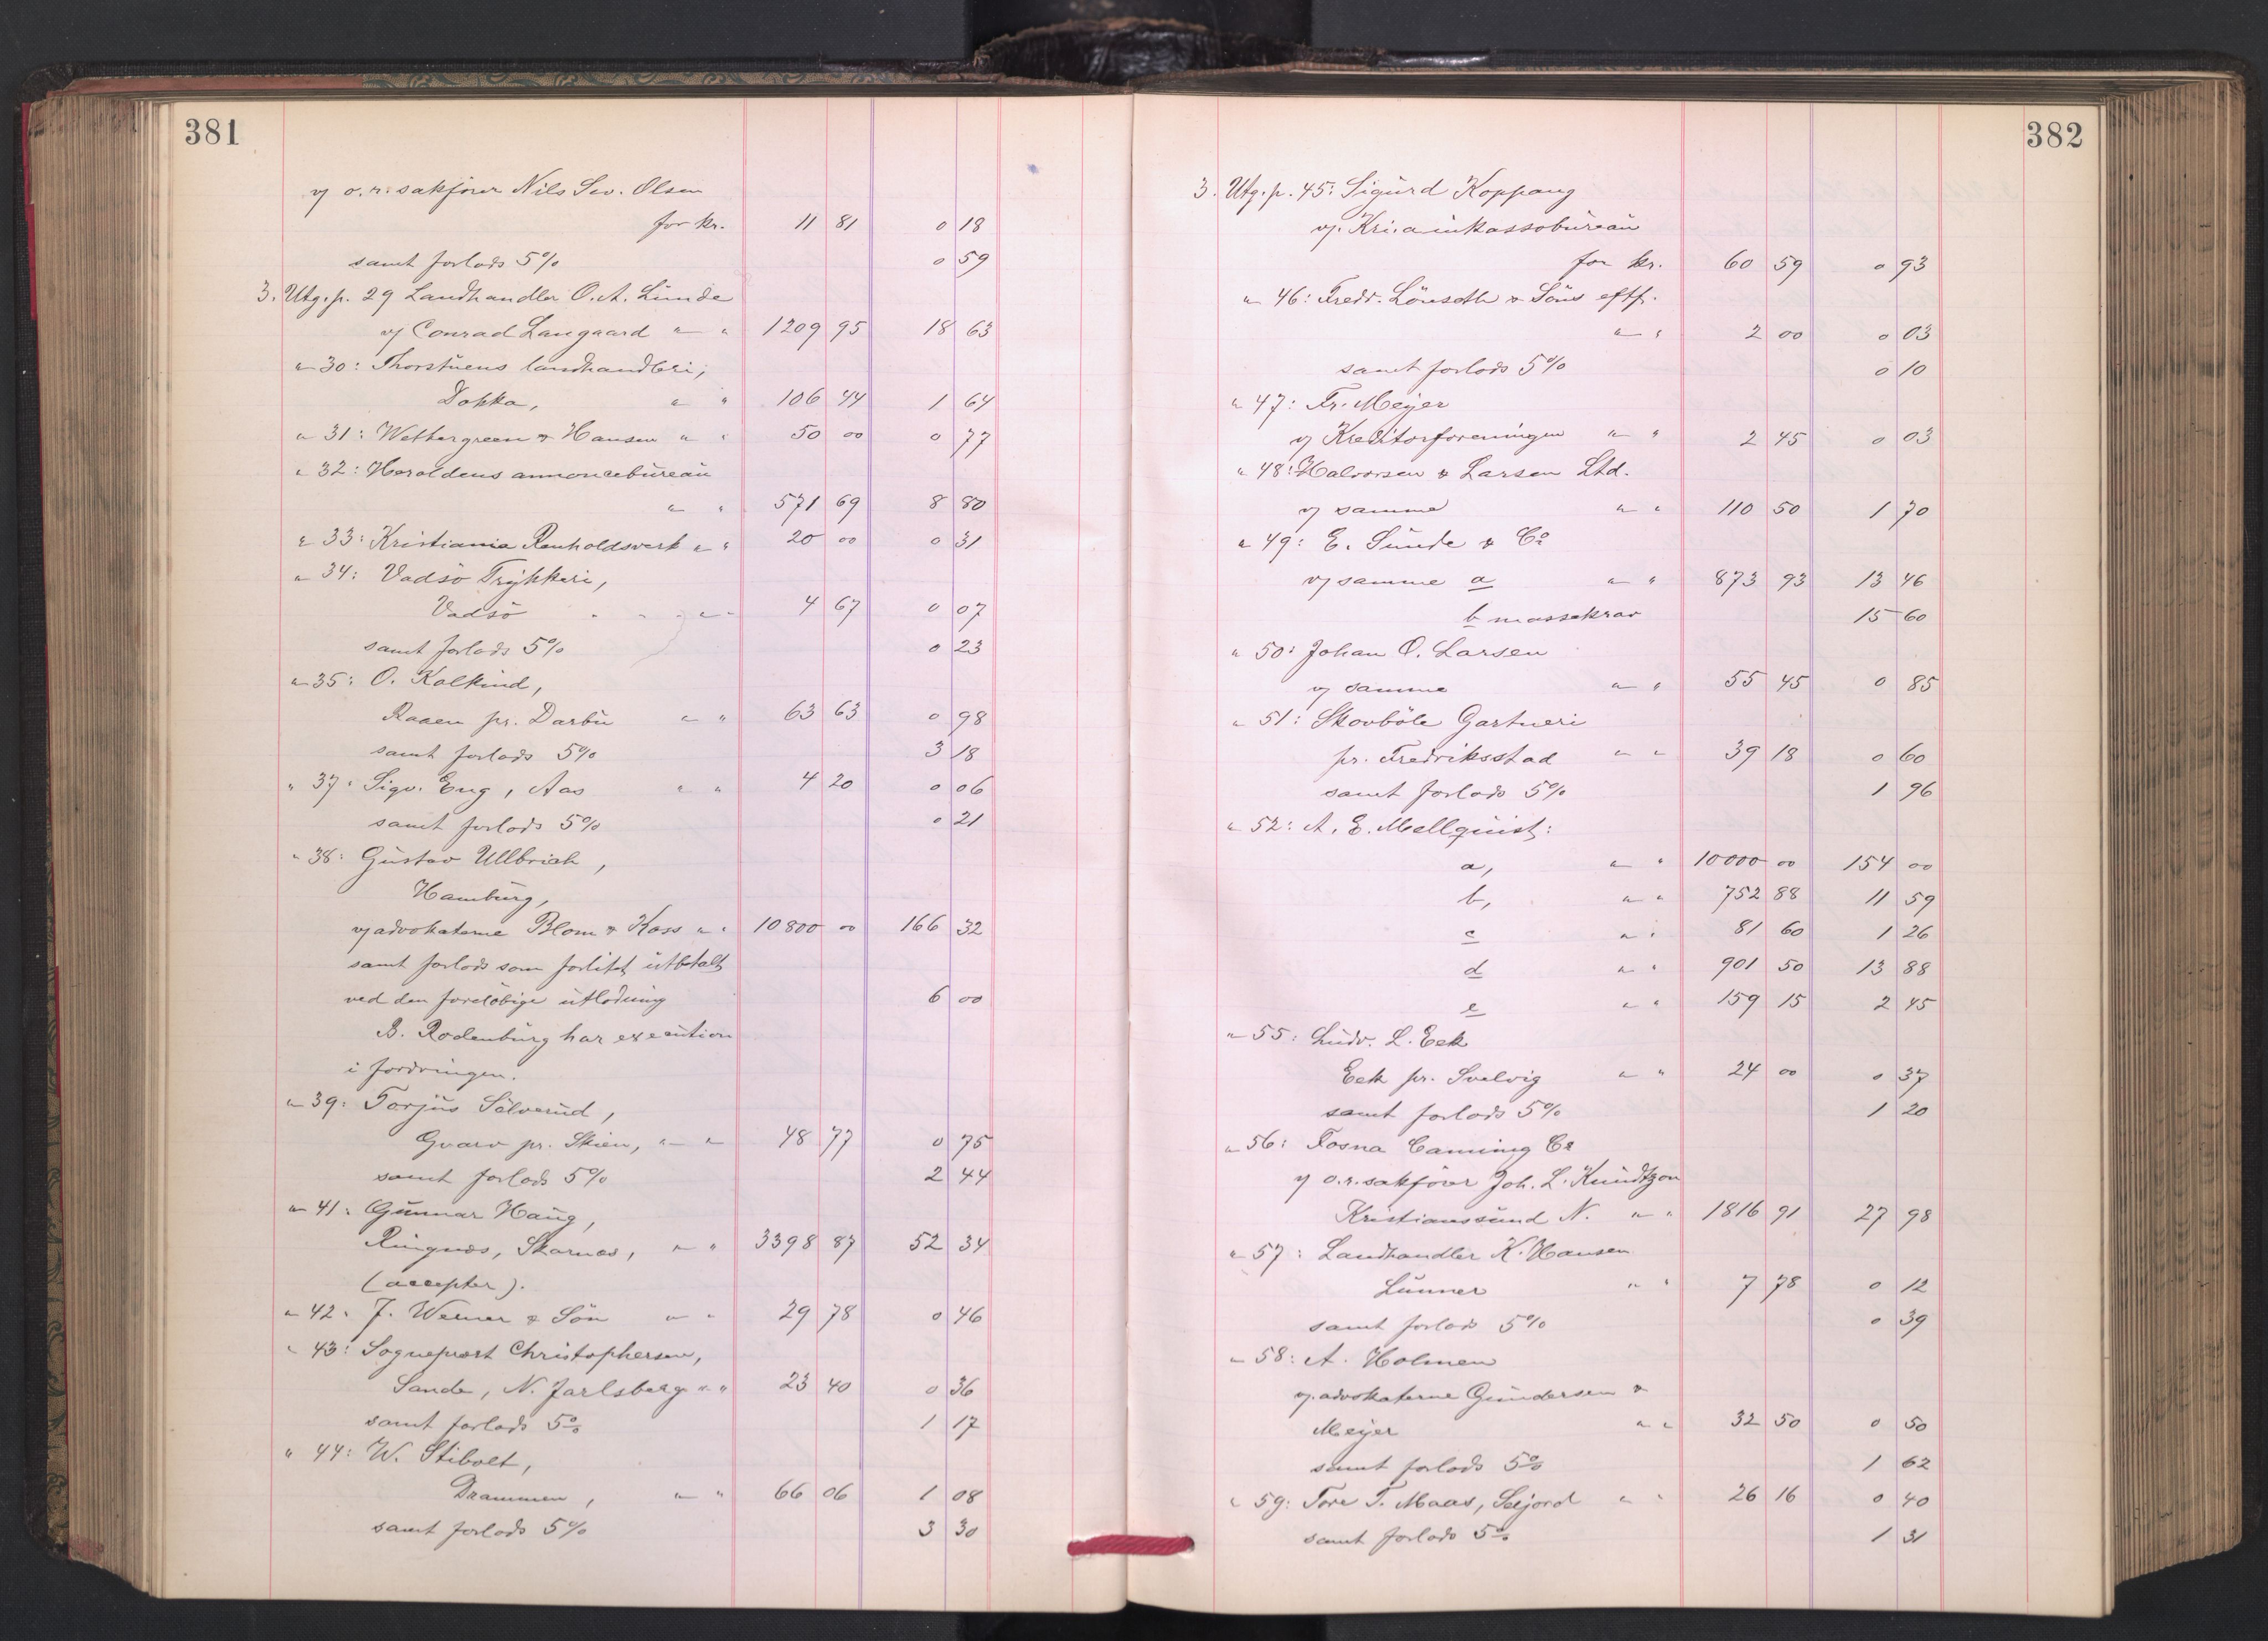 381
v/ o.r.sakfører Nils Sev. Olsen
for kr. 11 81 0 18
samt forlods 5% 0 59
3. Utg.p. 29 Landhandler O.A. Lunde
v/ Conrad Langaard " " 1209 95 18 63
" 30: Thorstuens landhandleri,
Dokka, " " 106 44 1 64
" 31: Wettergreen & Hansen " " 50 00 0 77
" 32: Heroldens annoncebureau
" " 571 69 8 80
" 33: Kristiania Renholdsverk " " 20 00 0 31
" 34: Vadsö Trykkeri,
Vadsö " " 4 67 0 07
samt forlods 5% 0 23
" 35: O. Kolkind,
Raaen pr. Darbu " " 63 63 0 98
samt forlods 5% 3 18
" 37: Sigv. Eng, Aas " " 4 20 0 06
samt forlods 5% 0 21
" 38: Gustav Ullbrich,
Hamburg,
v/ advokaterne Blom & Koss " " 10800 00 166 32
samt forlods som forlitet utbetalt
ved den foreløbige utlodning 6 00
B. Rodenburg har execution
i fordringen.
" 39: Torjus Sölverud,
Gvarv pr. Skien, " " 48 77 0 75
samt forlods 5% 2 44
" 41: Gunnar Haug,
Ringnes, Skarnes, " " 3398 87 52 34
(accepter).
" 42: J. Werner & Sön " " 29 78 0 46
" 43: Sogneprest Christophersen,
Sande, N. Jarlsberg " " 23 40 0 36
samt forlods 5% 1 17
" 44: W. Stibolt,
Drammen, " " 66 06 1 08
samt forlods 5% 3 30
382
3. Utg.p. 45: Sigurd Koppang
v/ Kr.i.a inkassobureau
for kr. 60 59 0 93
" 46: Fredr. Lönseth & Söns eftf.
" " 2 00 0 03
samt forlods 5% 0 10
" 47: Fr. Meyer
v/ Kreditorforeningen " " 2 45 0 03
" 48: Halvorsen & Larsen Ltd.
v/ samme " " 110 50 1 70
" 49: E. Sunde & Co
v/ samme a " " 873 93 13 46
b massekrav 15 60
" 50: Johan O. Larsen
v/ samme " " 55 45 0 85
" 51: Skovböle Gartneri
pr. Fredriksstad " " 39 18 0 60
samt forlods 5% 1 96
" 52: A. E. Mellquist:
a, " " 10000 00 154 00
b, " " 752 88 11 59
c " " 81 60 1 26
d " " 901 50 13 88
e " " 159 15 2 45
" 55: Ludv. L. Eek
Eek pr. Svelvig " " 24 00 0 37
samt forlods 5% 1 20
" 56: Fosna Canning Co
v/ o.r.sakfører Joh. L. Kundtzon
Kristianssund N. " " 1816 91 27 98
" 57: Landhandler K. Hansen
Lunner " " 7 78 0 12
samt forlods 5% 0 39
" 58: A. Holmen
v/ advokaterne Gundersen &
Meyer " " 32 50 0 50
samt forlods 5% 1 62
" 59: Tore T. Maas, Seljord " " 26 16 0 40
samt forlods 5% 1 31